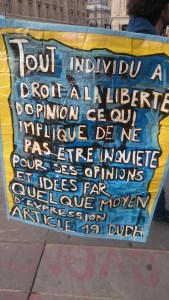 TOUT INDIVIDU A
DROIT À LA LIBERTÉ
D'OPINION CE QUI
IMPLIQUE DE NE
PAS ETRE INQUIÉTÉ
POUR SES OPINIONS
ET IDÉES PAR
QUELQUE MOYEN
D'EXPRESSION
ARTICLE 19 DUDH